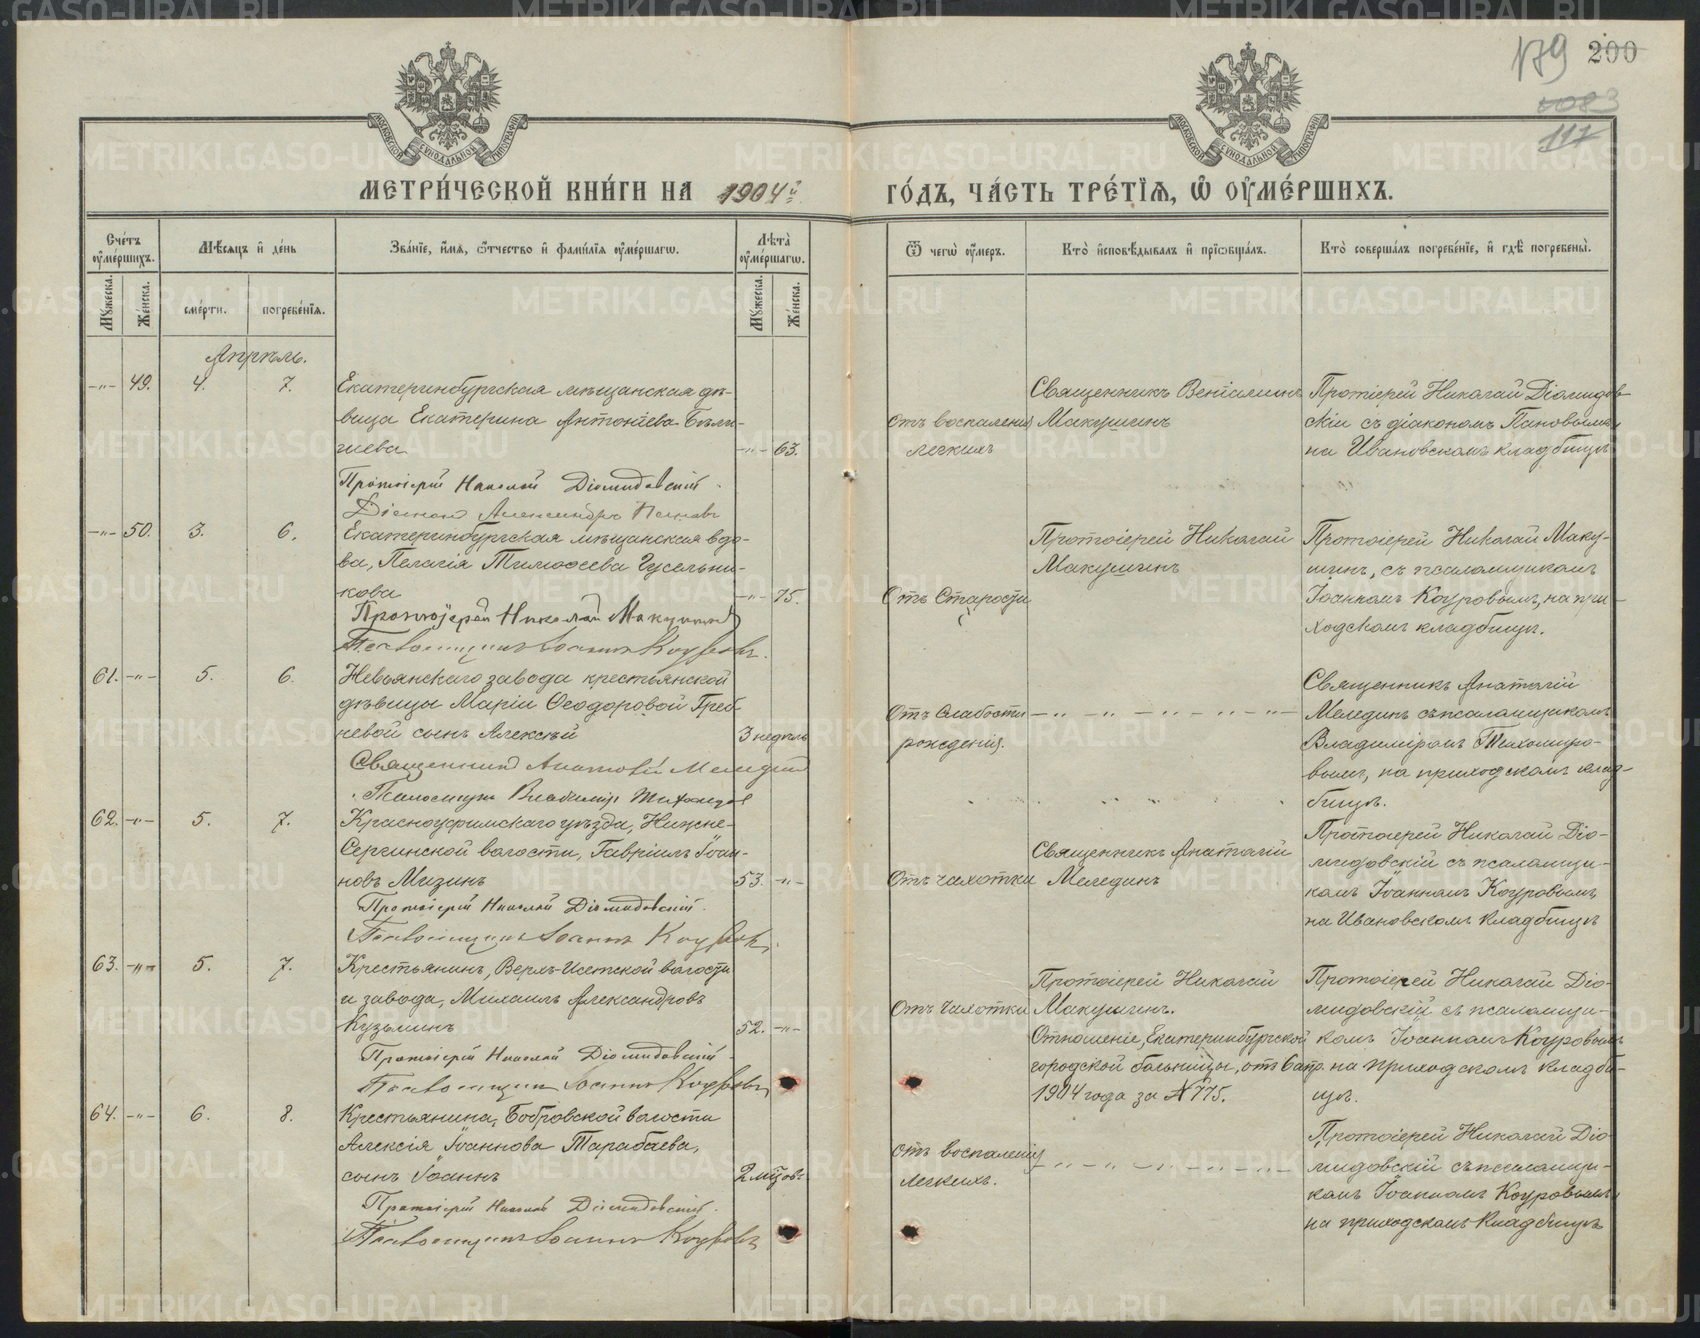 179 200
1083
117
МОСКОВСКОЙ СУНОДАЛЬНОЙ ТИПОГРАФІИ
МОСКОВСКОЙ СУНОДАЛЬНОЙ ТИПОГРАФІИ
МЕТРИ́ЧЕСКОЙ КНИ́ГИ НА 1904й
ГО́ДЪ, ЧА́СТЬ ТРЕ́ТЇѦ, Ѡ҆ ОУ҆МЕ́РШИХЪ.
Сче́тъ оу҆ме́ршихъ.
Мѣ́сяцъ и҆ де́нь
Зва́нїе, и҆́мѧ, ѻ҆́тчество и҆ фами́лїѧ оу҆ме́ршагѡ.
Лѣта̀ оу҆ме́ршагѡ.
Ѿ чегѡ̀ оу҆́меръ.
Кто̀ и҆сповѣ́дывалъ и҆ прїѡбща́лъ.
Кто̀ соверша́лъ погребе́нїе, и҆ гдѣ̀ погребены̀.
Мꙋ́жеска.
Же́нска.
сме́рти.
погребе́нїѧ.
Мꙋ́жеска.
Же́нска.
Апрѣль.
-"- 49. 4. 7. Екатеринбургская мѣщанская дѣ-
вица Екатерина Антонiева Бѣли-
чева -"- 63.
Протоіерій Николай Діомидовскій.
Діаконъ Александръ Пановъ
отъ воспаленія
легкихъ
Священникъ Веніаминъ
Макушинъ
Протіерей Николай Діомидов-
скій съ діакономъ Пановымъ
на Ивановскомъ кладбищѣ
-"- 50. 3. 6. Екатеринбургская мѣщанская вдо-
ва, Пелагія Тимоѳеева Гусельни-
кова -"- 75.
Протоіерей Николай Макушинъ
Псаломщикъ Іоаннъ Коуровъ.
Отъ Старости
Протоіерей Николай
Макушинъ
Протоіерей Николай Маку-
шинъ, съ псаломщикомъ
Іоанномъ Коуровымъ, на при-
ходскомъ кладбищѣ.
61. -"- 5. 6. Невьянскаго завода крестьянской
дѣвицы Маріи Ѳеодоровой Греб-
невой сынъ Алексѣй 3 недѣль
Священникъ Анатолій Меледин
Псаломщикъ Владиміръ Тихомиров
Отъ Слабости
рожденія.
-"-"-"-"-"-
Священникъ Анатолій
Мелединъ съ псаломщикомъ
Владиміромъ Тихомиро-
вымъ, на приходскомъ клад-
бищѣ.
62. -"- 5. 7. Красноуфимскаго уѣзда, Нижне-
Сергинской волости, Гавріилъ Іоан-
новъ Мизинъ 53. -"-
Протоіерій Николай Діомидовскій.
Псаломщикъ Іоаннъ Коуровъ.
Отъ чахотки
Священникъ Анатолій
Мелединъ
Протоіерей Николай Діо-
мидовскій съ псаломщи-
комъ Іоанномъ Коуровымъ,
на Ивановскомъ кладбищѣ
63. -"- 5. 7. Крестьянинъ, Верхъ-Исетской волости
и завода, Михаилъ Александровъ
Кузьминъ 52. -"-
Протоіерій Николай Діомидовскій.
Псаломщикъ Іоаннъ Коуровъ,
Отъ чахотки
Протоіерей Николай
Макушинъ.
Отношеніе, Екатеринбургской
городской больницы, отъ 6 апр.
1904 года за № 775.
Протоіерей Николай Діо-
мидовскій съ псаломщи-
комъ Іоанномъ Коуровымъ
на приходскомъ кладби-
щѣ.
64. -"- 6. 8. Крестьянина, Бобровской волости
Алексія Іоаннова Тарабаева,
сынъ Іоаннъ 2 мѣсцовъ
Протоіерій Николай Діомидовскій.
Псаломщикъ Іоаннъ Коуровъ
отъ воспаленія
легкихъ.
-"-"-"-"-"-
Протоіерей Николай Діо-
мидовскій съ псаломщи-
комъ Іоанномъ Коуровымъ
на приходскомъ кладбищѣ
METRIKI.GASO-URAL.RU